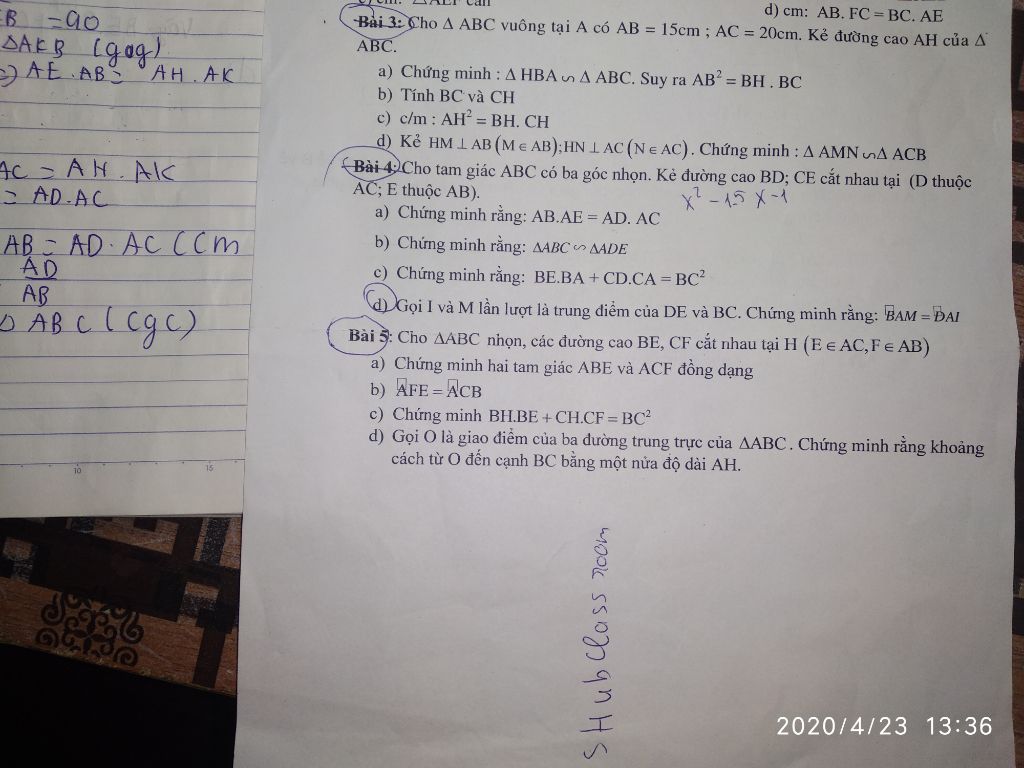 B = 90
ΔAKB (gog)
AE . AB = AH . AK
AC = AH . AK
= AD.AC
AB = AD . AC (Cm
AD
AB
ABC (CgC)
10 15
d) cm: AB. FC = BC. AE
Bài 3: Cho Δ ABC vuông tại A có AB = 15cm ; AC = 20cm. Kẻ đường cao AH của Δ
ABC.
a) Chứng minh : Δ HBA ∽ Δ ABC. Suy ra AB² = BH . BC
b) Tính BC và CH
c) c/m : AH² = BH. CH
d) Kẻ HM ⊥ AB (M ∈ AB); HN ⊥ AC (N ∈ AC). Chứng minh : Δ AMN ∽Δ ACB
Bài 4: Cho tam giác ABC có ba góc nhọn. Kẻ đường cao BD; CE cắt nhau tại (D thuộc
AC; E thuộc AB).
x² - 15 x - 1
a) Chứng minh rằng: AB.AE = AD. AC
b) Chứng minh rằng: ΔABC ∽ ΔADE
c) Chứng minh rằng: BE.BA + CD.CA = BC²
d) Gọi I và M lần lượt là trung điểm của DE và BC. Chứng minh rằng: BAM = DAI
Bài 5: Cho ΔABC nhọn, các đường cao BE, CF cắt nhau tại H (E ∈ AC, F ∈ AB)
a) Chứng minh hai tam giác ABE và ACF đồng dạng
b) AFE = ACB
c) Chứng minh BH.BE + CH.CF = BC²
d) Gọi O là giao điểm của ba đường trung trực của ΔABC. Chứng minh rằng khoảng
cách từ O đến cạnh BC bằng một nửa độ dài AH.
sHub class room
2020/4/23 13:36